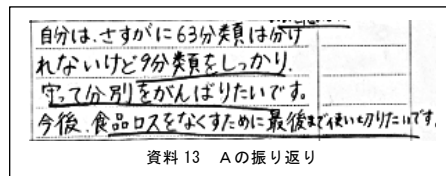 自分は、さすがに63分類は分け
れないけど9分類をしっかり、
守って分別をがんばりたいです。
今後、食品ロスをなくすために最後まで使い切りたいです。
資料13 Aの振り返り